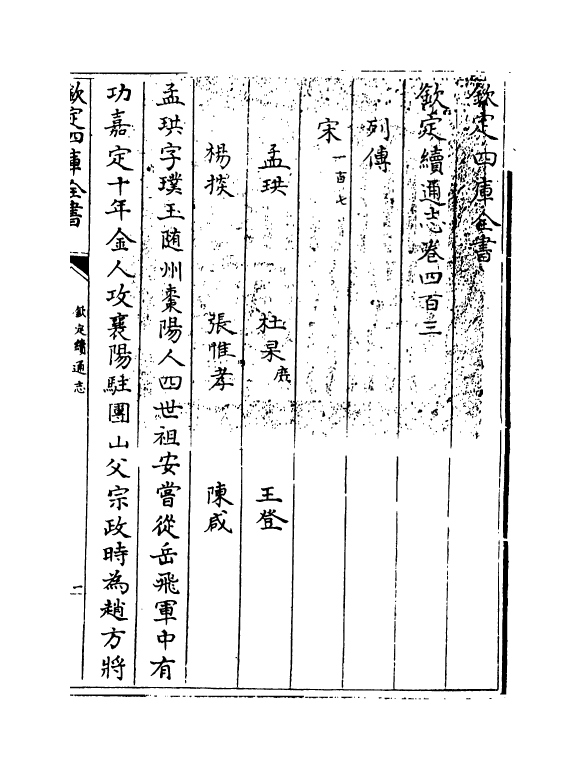 欽定四庫全書
欽定續通志卷四百三
列傳
宋 一百七
孟珙 杜杲 庶 王登
楊掞 張惟孝 陳咸
孟珙字璞玉随州棗陽人四世祖安嘗從岳飛軍中有
功嘉定十年金人攻襄陽駐團山父宗政時為趙方將
欽定四庫全書 欽定續通志 一